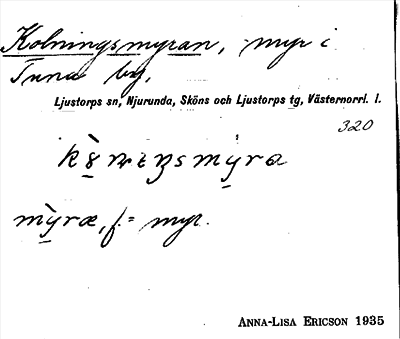 Kolningsmyran, myr i
Tuna by,
Ljustorps sn, Njurunda, Sköns och Ljustorps tg, Västernorrl. l.
320
mỳ̱ræ, f. = myr.
ANNA-LISA ERICSON 1935